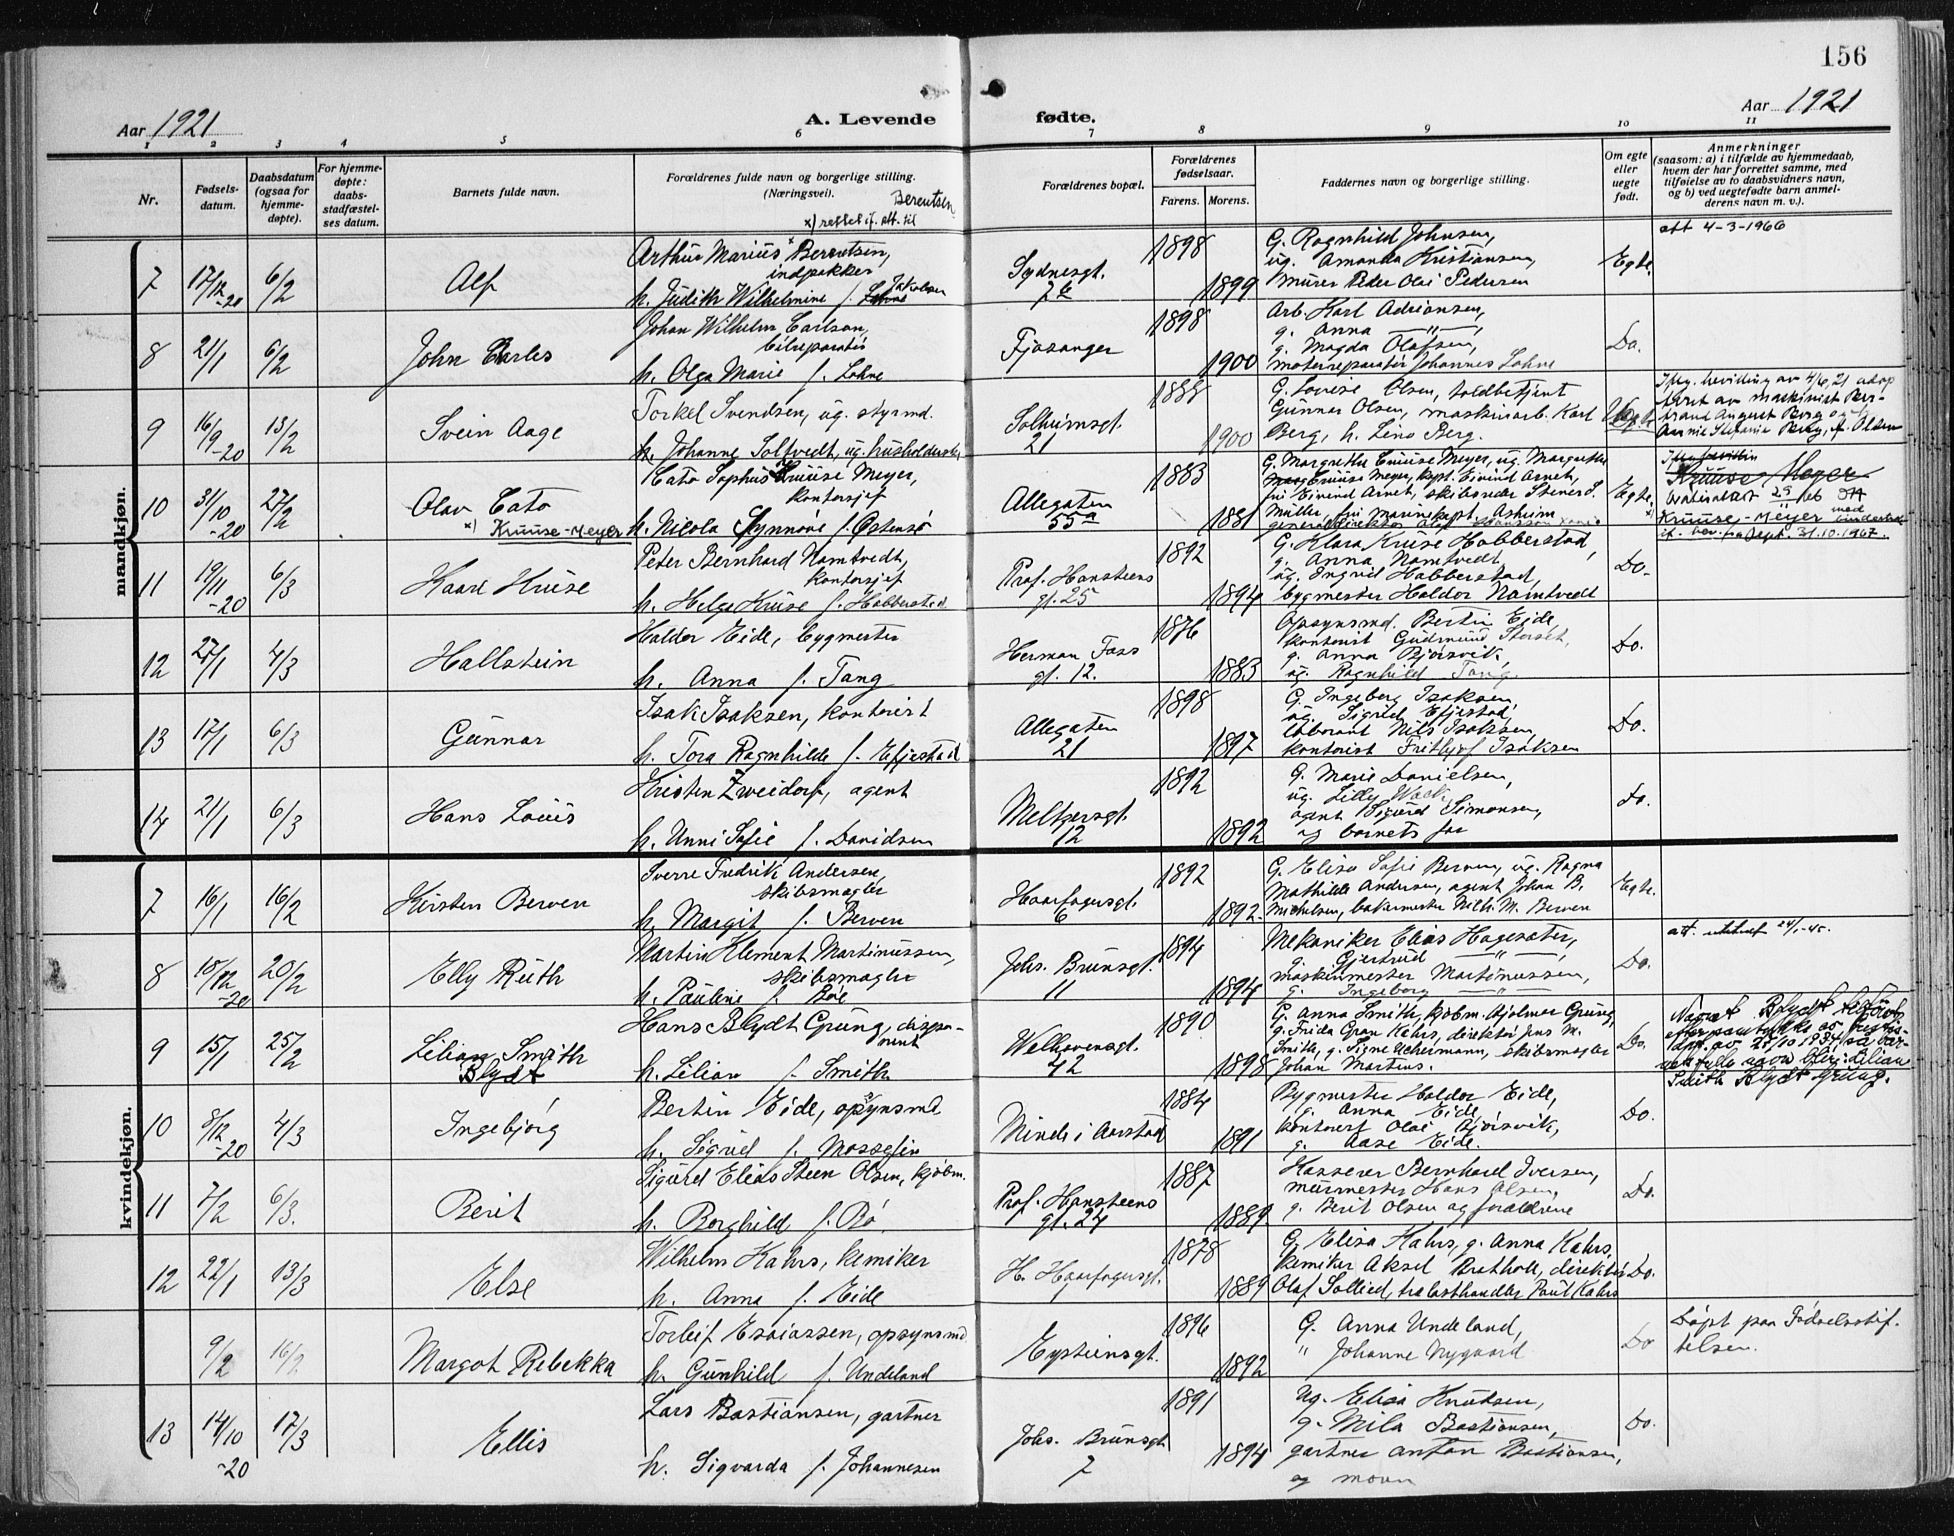 156
Aar 1921
A. Levende
fødte.
Aar 1921
1 2 3 4 5 6 7 8 9 10 11
Nr.
Fødsels-
datum.
Daabsdatum
(ogsaa for
hjemme-
døpte).
For hjemme-
døpte:
daabs-
stadfæstel-
ses datum.
Barnets fulde navn.
Forældrenes fulde navn og borgerlige stilling.
(Næringsvei).
Berentsen
x) rettet if. att. til
Forældrenes bopæl.
Forældrenes
fødselsaar.
Farens. Morens.
Faddernes navn og borgerlige stilling.
Om egte
eller
uegte
født.
Anmerkninger
(saasom: a) i tilfælde av hjemmedaab,
hvem der har forrettet samme, med
tilføielse av to daabsvidners navn,
og b) ved uegtefødte barn anmel-
derens navn m. v.).
mandkjøn.
7 17/12 -20 6/2 Alf
Arthur Marius Berentsen,
indpakker
h. Judith Wilhelmine f.
Sydnesgt.
1898 1899
G. Ragnhild Johnsen,
ug. Amanda Kristiansen,
murer Peder Olai Pedersen
Egte.
att 4-3-1966
8 21/1 6/2 John Carles
Johan Wilhelm Carlson,
bilreparatør
h. Olga Marie f. Lohne
Fjøsanger
1898 1900
Arb. Karl Adriansen,
g. Anna —"—,
g. Magda Olafsen,
motorreparatør Johannes Lohne
Do.
9 16/9 -20 13/2 Svein Aage
Torkel Svendsen, ug. styrmd.
h. Johanne Soltvedt, ug. husholderske
Solheimsgt.
21
1900
G. Lovise Olsen, toldbetjent
Gunnar Olsen, maskinarb. Karl
Berg, h. Lina Berg.
Iflg. bevilling av 4/6, 21 adop
tert av maskinist Ber-
trand August Berg og h.
Annie Stefanie Berg, f. Olsen
10 31/10 -20 27/2 Olav Cato
x) Kruuse-Meyer
Cato Sophus Kruuse Meyer,
kontorsjef
h. Nicola Synnøve f. Østensø
Allegaten
55a
1883 1881
G. Margrethe Cruuse Meyer, ug. Margrethe
Cruuse Meyer, kapt. Eivind Arnet,
fru Eivind Arnet, skibsreder Stener S.
Müller, fru Marinekapt. Asheim
generaldirektør
Egte.
Kruuse Meyer
Kruuse-Meyer med
if. bev. fra Dept. 31.10.1967.
11 19/11 -20 6/3 Kaare Kruse
Peter Bernhard Namtvedt,
kontorsjef
h. Helga Kruse f. Habberstad
Prof. Hansteens
gt. 25
1892 1894
G. Klara Kruse Habberstad,
g. Anna Namtvedt,
ug. Ingrid Habberstad,
bygmester Haldor Namtvedt
Do.
12 27/1 4/3 Hallstein
Haldor Eide, bygmester
h. Anna f. Tang
Herman Foss
gt. 12.
1876 1883
Opsynsmd. Bertin Eide,
kontorist Gudmund Storset,
g. Anna Bjørsvik,
ug. Ragnhild Tang.
Do.
13 17/1 6/3 Gunnar
Isak Isaksen, kontorist
h. Tora Ragnhilde f. Efjestad
Allegaten
21
1898 1897
G. Ingeborg Isaksen,
ug. Sigrid Efjestad,
laborant Nils Isaksen,
kontorist Frithjof Isaksen
Do.
14 21/1 6/3 Hans Louis
Kristen Zweidorf, agent
h. Unni Sofie f. Davidsen
Meltzersgt.
12
1892 1892
G. Marie Danielsen,
ug. Lilly
agent Sigurd Simonsen,
og barnets far
Do.
kvindekjøn.
7 16/1 16/2 Kirsten Berven
Sverre Fredrik Andersen,
skibsmægler
h. Margit f. Berven
Haarfagersgt.
6
1892 1892.
G. Elise Sofie Berven, ug. Ragna
Mathilde Andersen, agent Johan B.
Michelsen, bakermester Wilh. M. Berven
Egte.
8 15/12 -20 20/2 Elly Ruth
Martin Klement Martinussen,
skibsmægler
h. Pauline f. Bøe
Johs. Brunsgt.
11
1894 1894
Mekaniker Elias Hagesæter,
g. Gjertrud —"—,
maskinmester Martinussen,
g. Ingeborg —"—
Do.
att. utstedt 24/1-45.
9 15/1 25/2 Lilian Smith
Blydt
Hans Blydt Grung, dispo-
nent
h. Lilian f. Smith
Welhavensgt.
1890 1898
G. Anna Smith, kjøbm. Hjalmar Grung,
g. Frida Gran Kahrs, direktør Jens M.
Smith, g. Signe Uchermann, skibsmægler
Johan Martens.
Do.
Navnet Blydt tilføiet
efter samtykke av Justis-
dept. av 25/10 1934 så bar-
nets fulde navn blir: Lilian
Smith Blydt Grung.
10 8/12 -20 4/3 Ingebjørg
Bertin Eide, opsynsmd
h. Sigrid f. Mossefin
Minde i Aarstad
1884 1891
Bygmester Haldor Eide,
g. Anna Eide,
kontorist Olai Bjørsvik,
g. Aase Eide.
Do.
11 7/2 6/3. Berit
Sigurd Elias Steen Olsen, kjøbm.
h. Borghild f. Bø
Prof. Hansteens
gt. 24
1887 1889
Kasserer Bernhard Iversen,
murmester Hans Olsen,
g. Berit Olsen og forældrene
Do.
12 22/1 13/3 Else
Wilhelm Kahrs, kemiker
h. Anna f. Eide
H. Haarfagersgt.
1878 1889
G. Elisa Kahrs, g. Anna Kahrs,
kemiker Aksel Bratholt, direktør
Olaf Sollied, trælasthandler Paul Kahrs
Do.
9/2 16/2 Margot Rebekka
Torleif Esaiassen, opsynsmd
h. Gunhild f. Undeland
Eysteinsgt.
1896 1892
G. Anna Undeland,
" Johanne Nygaard
Do
Døpt paa Fødselsstif-
telsen.
13 14/10 -20 17/3 Ellis
Lars Bastiansen, gartner
h. Sigvarda f. Johannesen
Johs. Brunsgt.
7
1891 1894
Ug. Elisa Knutsen,
g. Mila Bastiansen,
gartner Anton Bastiansen,
og moren
Do.